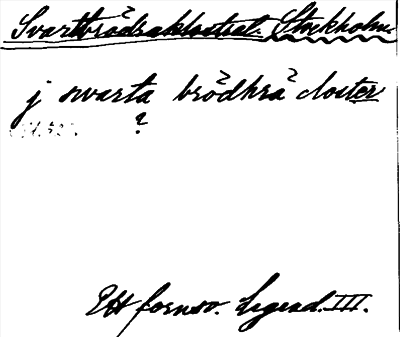 Svartbrödraklostret. Stockholm.
j swarta brödhra closter
?
Ett fornsv. Legend. III.